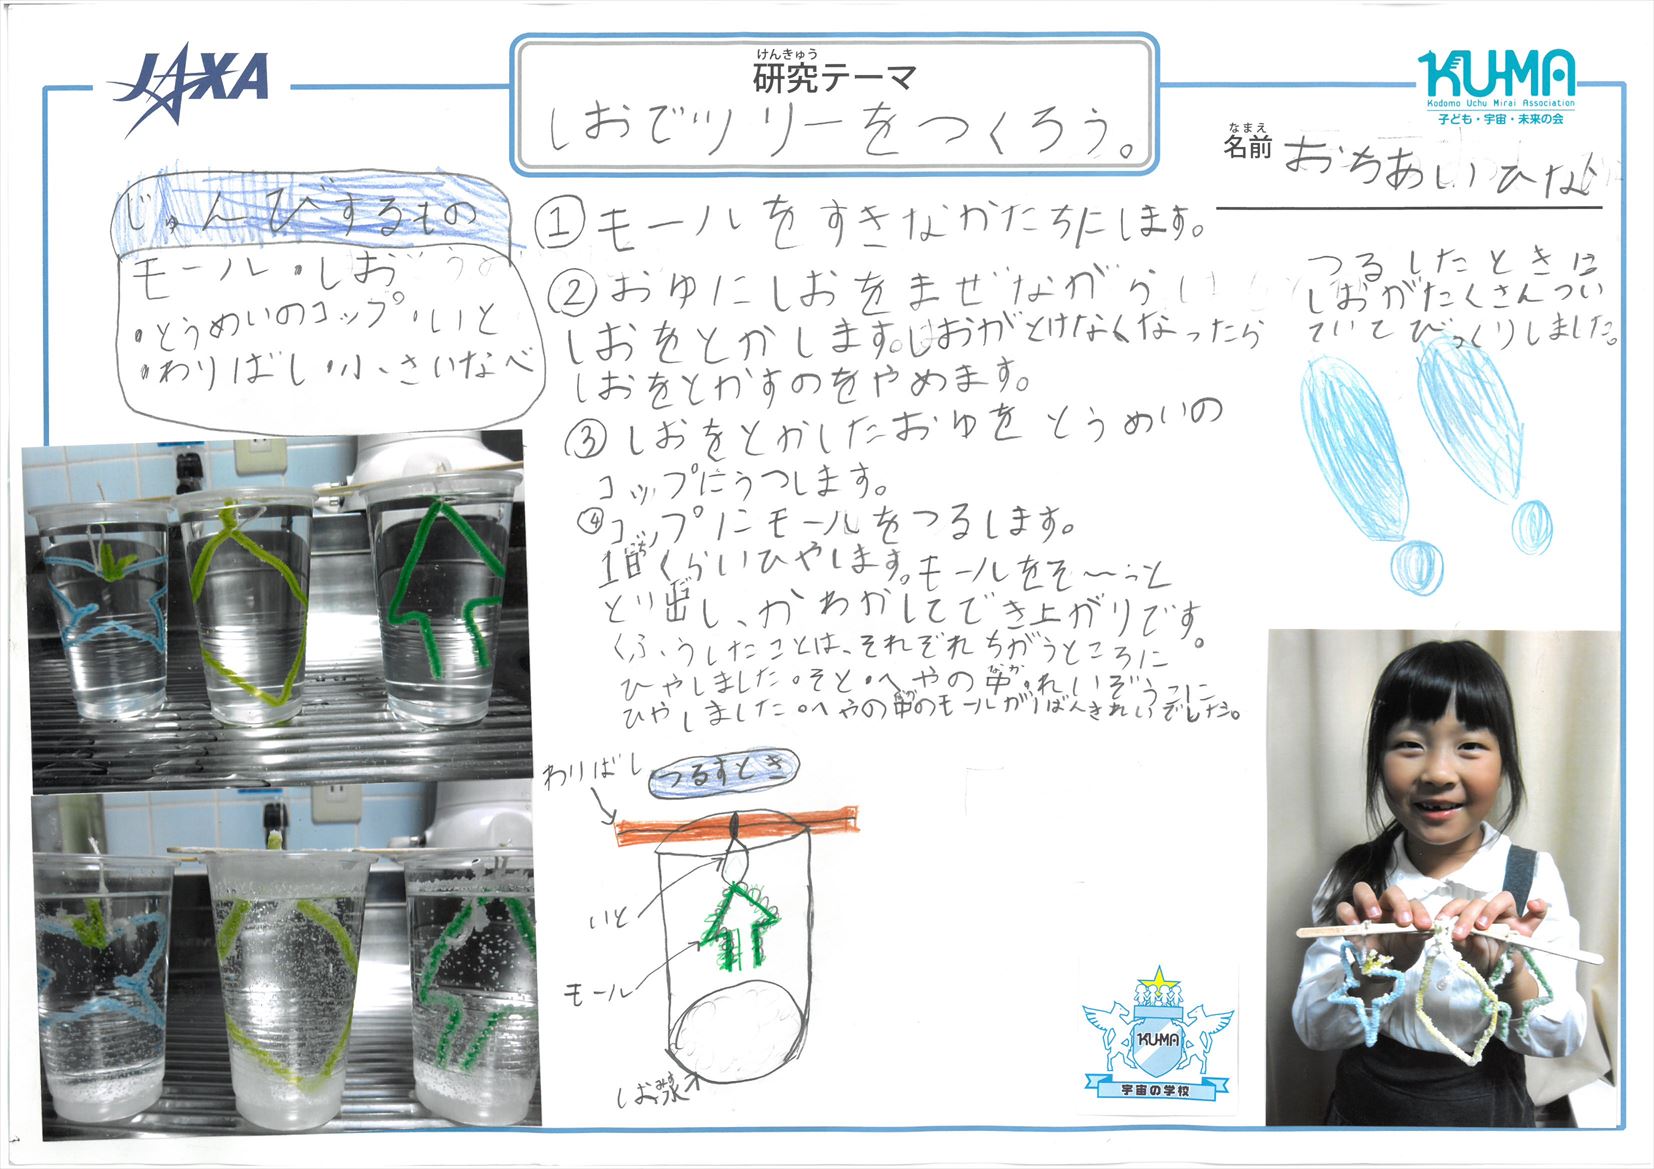 JAXA
けんきゅう
研究テーマ
しおでツリーをつくろう。
KUMA
Kodomo Uchu Mirai Association
子ども・宇宙・未来の会
なまえ
名前 おちあいひな
じゅんびするもの
モール・しお
・とうめいのコップ・いと
・わりばし・小さいなべ
①モールをすきなかたちにします。
②おゆにしおをまぜながら
しおをとかします。しおがとけなくなったら
しおをとかすのをやめます。
③しおをとかしたおゆをとうめいの
コップにうつします。
④コップにモールをつるします。
1日くらいひやします。モールをそ〜っと
とり出し、かわかしてでき上がりです。
くふうしたことは、それぞれちがうところに
ひやしました。そと・へやの中・れいぞうこに
ひやしました。へやの中のモールが1ばんきれいでした。
つるしたときに
しおがたくさんつい
ていてびっくりしました。
わりばし
つるすとき
いと
モール
しお水
KUMA
宇宙の学校